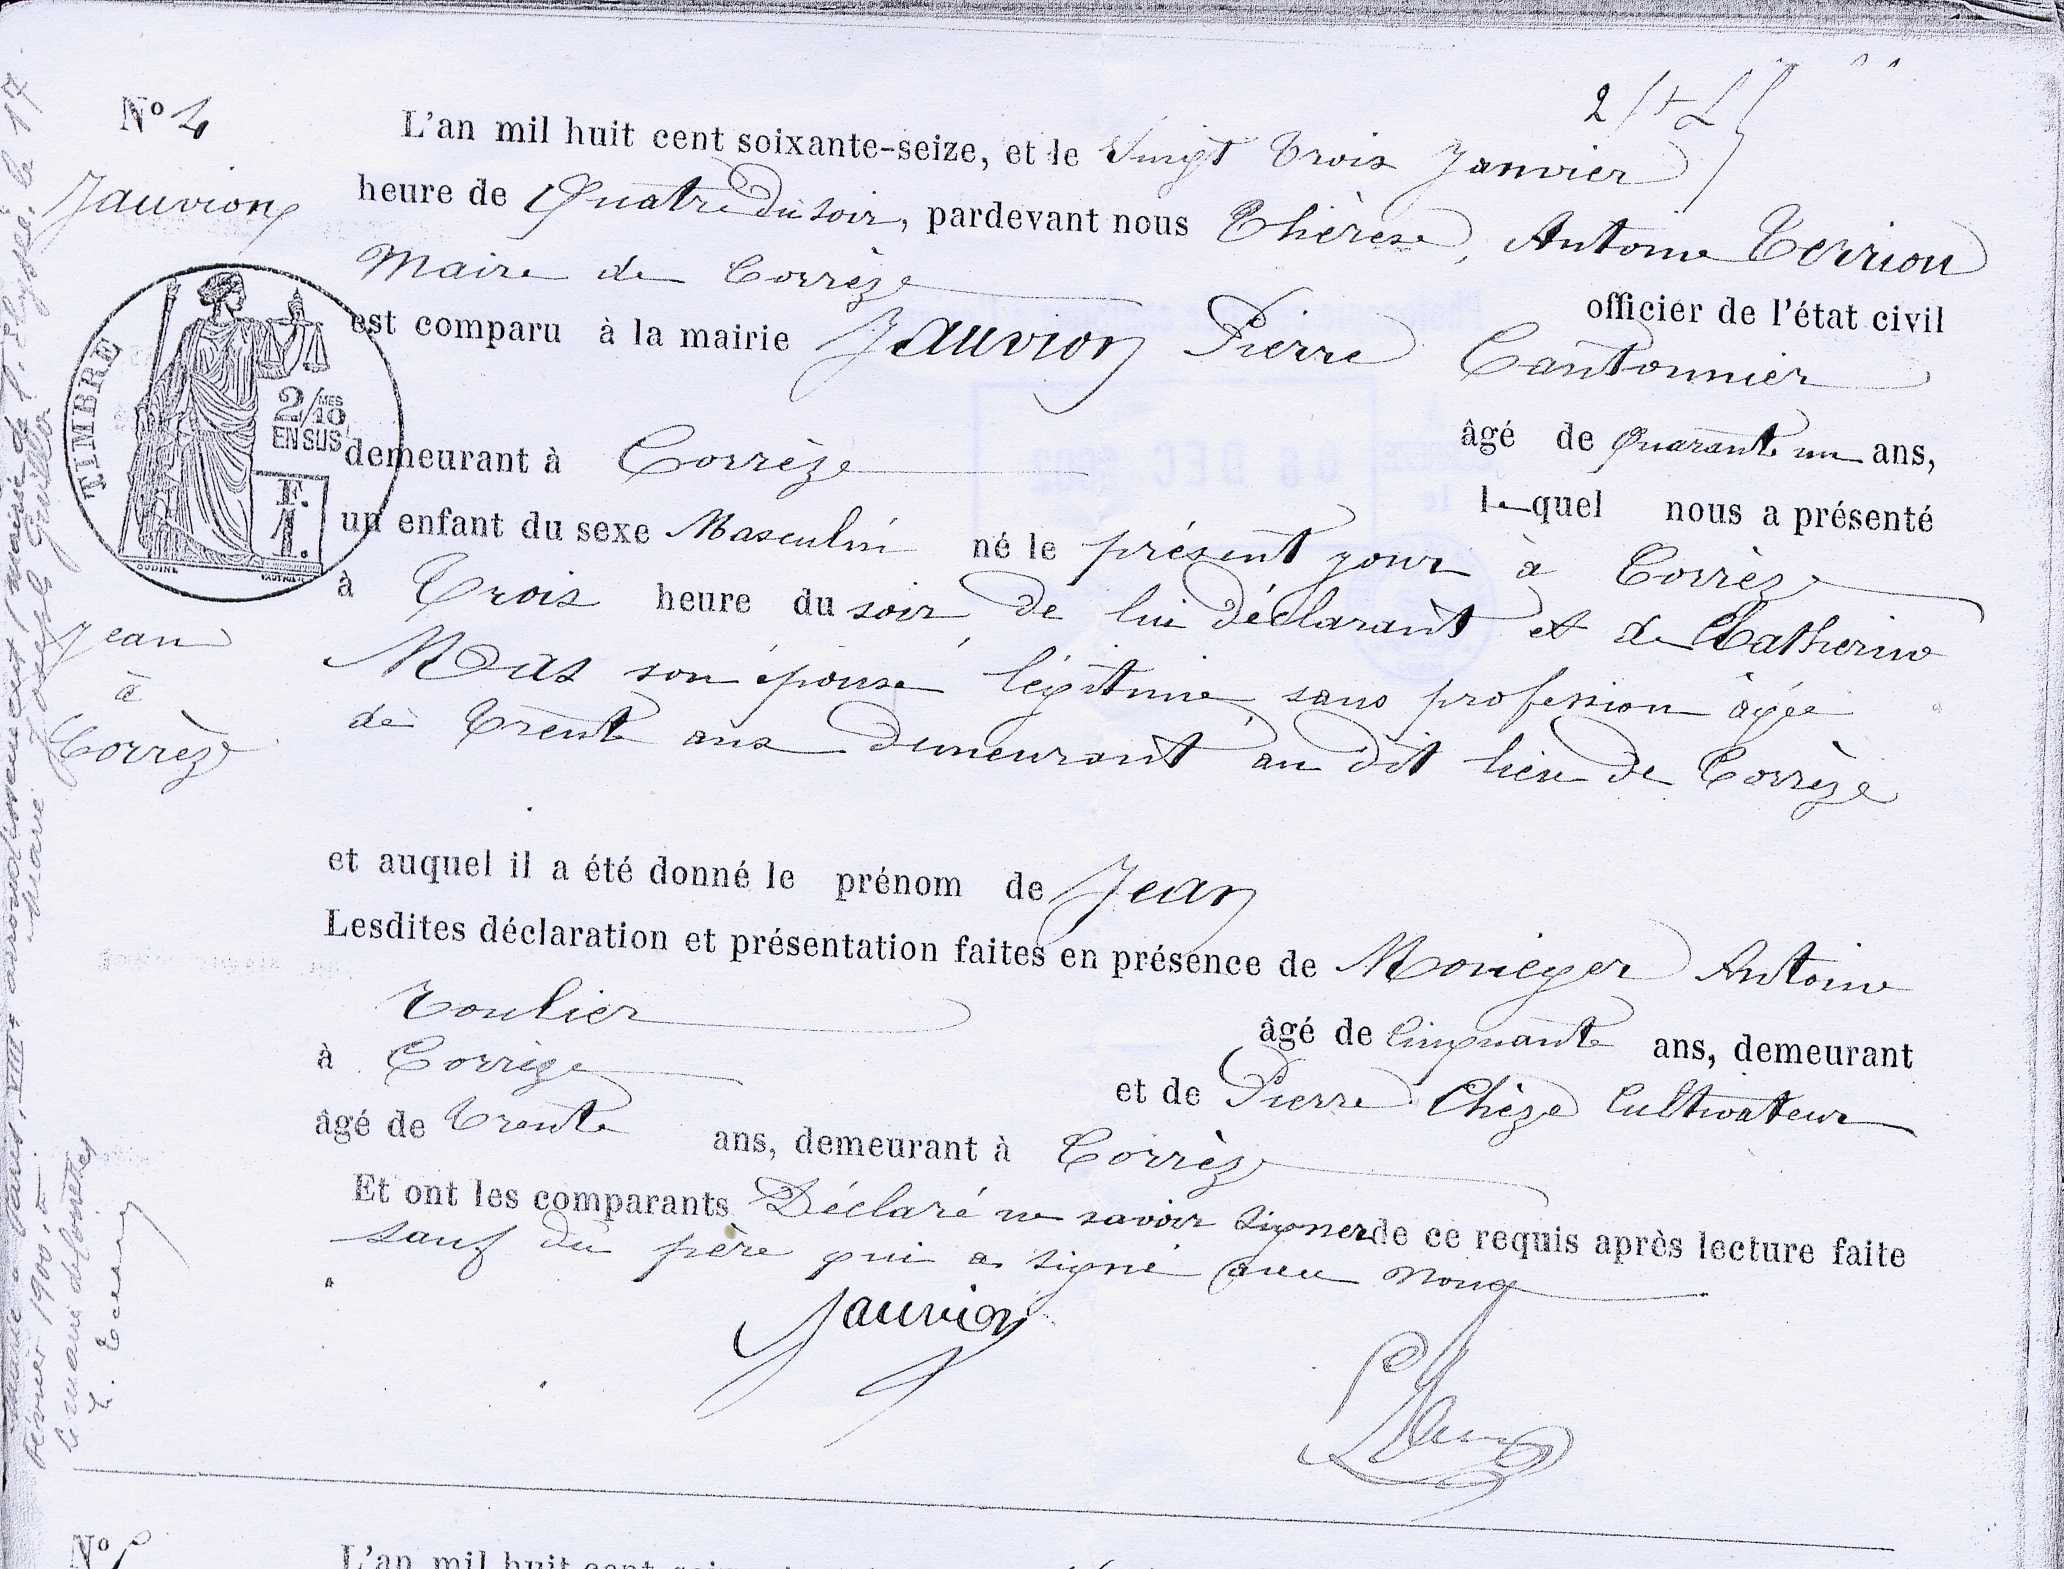 N° 4
Jauvion
TIMBRE
2/10 MES
EN SUS
F.
1.
OUDINÉ
Jean
à
Corrèze
L'an mil huit cent soixante-seize, et le Vingt Trois Janvier
heure de Quatre du soir, pardevant nous Thérèse, Antoine Terriou
Maire de Corrèze officier de l'état civil
est comparu à la mairie Jauvion Pierre Cantonnier
âgé de Quarante un ans,
demeurant à Corrèze lequel nous a présenté
un enfant du sexe Masculin né le présent jour à Corrèze
à Trois heure du soir, de lui déclarant et de Catherine
Mas son épouse légitime, sans profession âgée
de Trente ans demeurant au dit lieu de Corrèze
et auquel il a été donné le prénom de Jean
Lesdites déclaration et présentation faites en présence de Monéger Antoine
Toulier âgé de Cinquante ans, demeurant
à Corrèze et de Pierre Chèze Cultivateur
âgé de Trente ans, demeurant à Corrèze
Et ont les comparants Déclaré ne savoir signer de ce requis après lecture faite
sauf du père qui a signé avec nous
Jauvion
Marié à Paris, VIIIe arrondissement (mairie de l'Elysée, le 17
février 1900, à Marie Joseph
N°
L'an mil huit cent